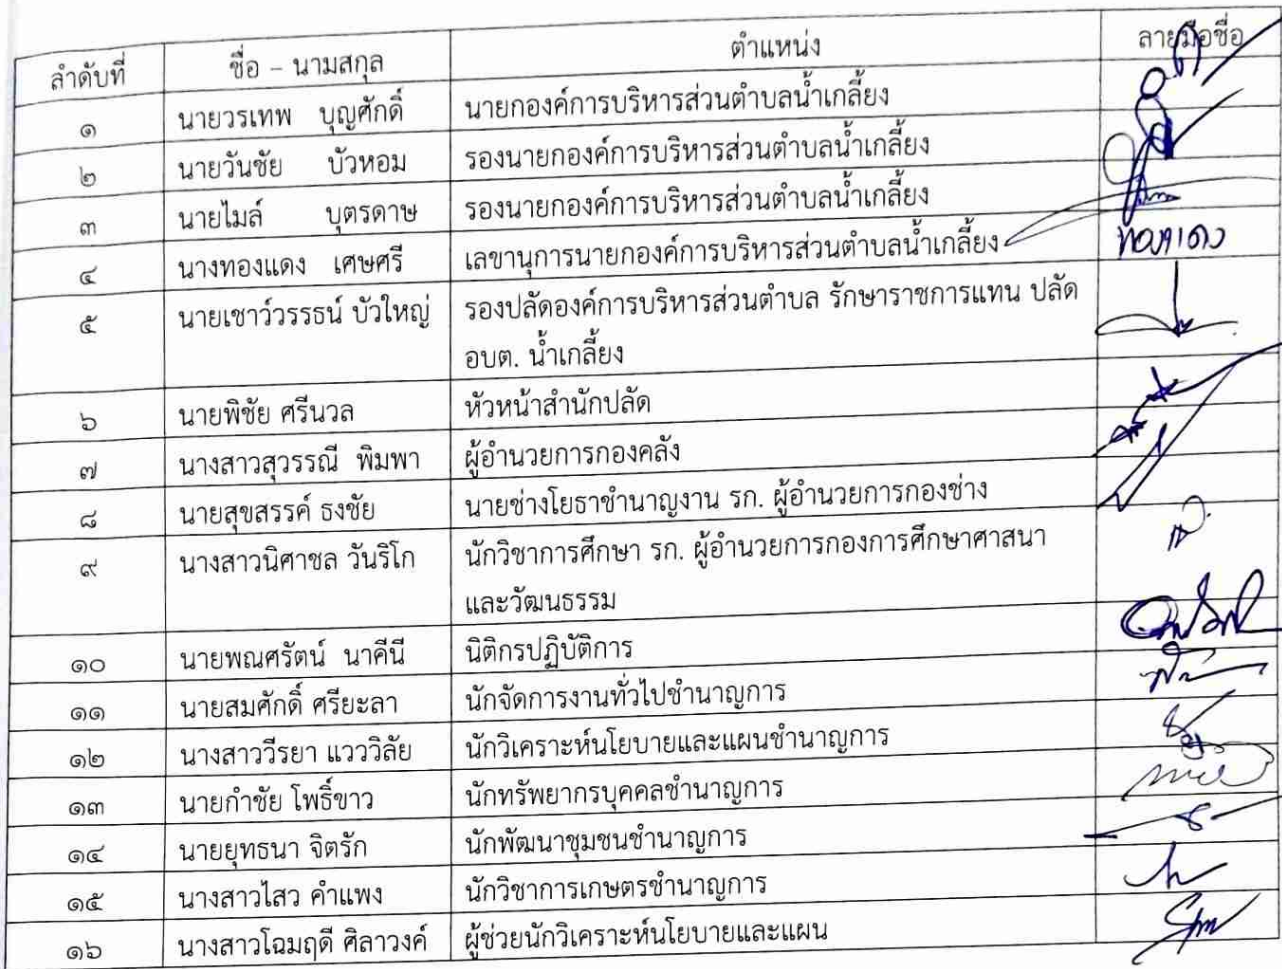 ลำดับที่ ชื่อ – นามสกุล ตำแหน่ง ลายมือชื่อ
๑ นายวรเทพ บุญศักดิ์ นายกองค์การบริหารส่วนตำบลน้ำเกลี้ยง
๒ นายวันชัย บัวหอม รองนายกองค์การบริหารส่วนตำบลน้ำเกลี้ยง
๓ นายไมล์ บุตรดาษ รองนายกองค์การบริหารส่วนตำบลน้ำเกลี้ยง
๔ นางทองแดง เศษศรี เลขานุการนายกองค์การบริหารส่วนตำบลน้ำเกลี้ยง ทองแดง
๕ นายเชาว์วรรธน์ บัวใหญ่ รองปลัดองค์การบริหารส่วนตำบล รักษาราชการแทน ปลัด
อบต. น้ำเกลี้ยง
๖ นายพิชัย ศรีนวล หัวหน้าสำนักปลัด
๗ นางสาวสุวรรณี พิมพา ผู้อำนวยการกองคลัง
๘ นายสุขสรรค์ ธงชัย นายช่างโยธาชำนาญงาน รก. ผู้อำนวยการกองช่าง
๙ นางสาวนิศาชล วันริโก นักวิชาการศึกษา รก. ผู้อำนวยการกองการศึกษาศาสนา
และวัฒนธรรม
๑๐ นายพณศรัตน์ นาคีนี นิติกรปฏิบัติการ
๑๑ นายสมศักดิ์ ศรียะลา นักจัดการงานทั่วไปชำนาญการ
๑๒ นางสาววีรยา แวววิลัย นักวิเคราะห์นโยบายและแผนชำนาญการ
๑๓ นายกำชัย โพธิ์ขาว นักทรัพยากรบุคคลชำนาญการ
๑๔ นายยุทธนา จิตรัก นักพัฒนาชุมชนชำนาญการ
๑๕ นางสาวไสว คำแพง นักวิชาการเกษตรชำนาญการ
๑๖ นางสาวโฉมฤดี ศิลาวงค์ ผู้ช่วยนักวิเคราะห์นโยบายและแผน